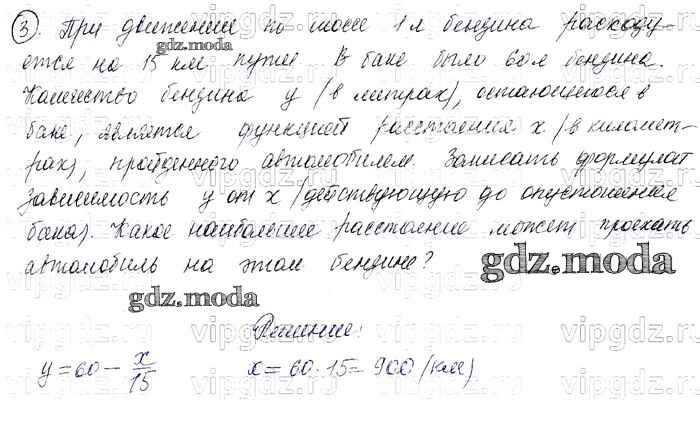 3. При движении по шоссе 1 л бензина расходу-
ется на 15 км пути. В баке было 60 л бензина.
Количество бензина y (в литрах), остающегося в
баке, является функцией расстояния x (в километ-
рах), пройденного автомобилем. Записать формулой
зависимость y от x (действующую до опустошения
бака). Какое наибольшее расстояние может проехать
автомобиль на этом бензине?
gdz.moda
gdz.moda
gdz.moda
Решение:
y = 60 - x/15 x = 60 · 15 = 900 (км)
gdz.moda